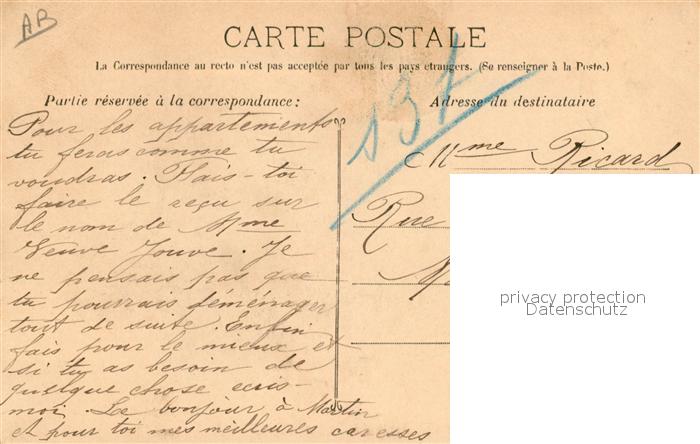 AB
CARTE POSTALE
La Correspondance au recto n'est pas acceptée par tous les pays étrangers. (Se renseigner à la Poste.)
Partie réservée à la correspondance :
Adresse du destinataire
137
Pour les appartements
tu feras comme tu
voudras. Fais-toi
faire le reçu sur
le nom de Mme
Veuve Jouve. Je
ne pensais pas que
tu pourrais déménager
tout de suite. Enfin
fais pour le mieux et
si tu as besoin de
quelque chose ecris-
moi. Le bonjour à Martin
et pour toi mes meilleures caresses
Mme Ricard
Rue
privacy protection
Datenschutz